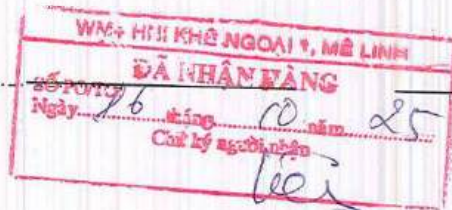 WM+ HNI KHÊ NGOẠI 1, MÊ LINH
ĐÃ NHẬN HÀNG
SỐ PO/TO
Ngày 26 tháng 10 năm 25
Chữ ký người nhận